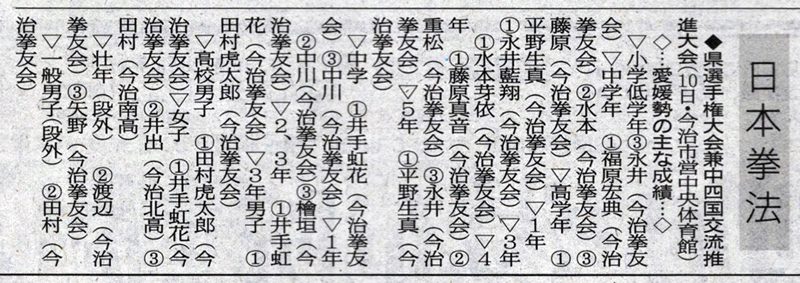 日本拳法
◆県選手権大会兼中四国交流推
進大会(10日・今治市営中央体育館)
◇…愛媛勢の主な成績…◇
▽小学低学年③永井(今治拳友
会)▽中学年 ①福原宏典(今治
拳友会)②水本(今治拳友会)③
藤原(今治拳友会)▽高学年 ①
平野生真(今治拳友会)▽1年
①永井藍翔(今治拳友会)▽3年
①水本芽依(今治拳友会)▽4
年 ①藤原真音(今治拳友会)②
重松(今治拳友会)③永井(今治
拳友会)▽5年 ①平野生真(今
治拳友会)
▽中学 ①井手虹花(今治拳友
会)③中川(今治拳友会)▽1年
②中川(今治拳友会)③檜垣(今
治拳友会)▽2、3年 ①井手虹
花(今治拳友会)▽3年男子 ①
田村虎太郎(今治拳友会)
▽高校男子 ①田村虎太郎(今
治拳友会)▽女子 ①井手虹花(今
治拳友会)②井出(今治北高)③
田村(今治南高)
▽壮年(段外) ②渡辺(今治
拳友会)③矢野(今治拳友会)
▽一般男子(段外) ②田村(今
治拳友会)